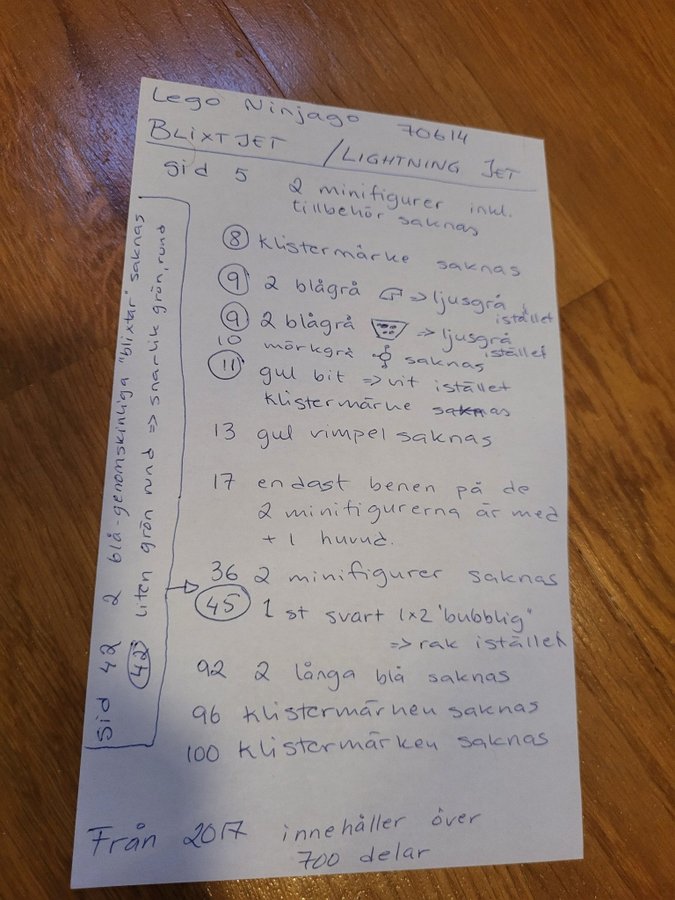 Lego Ninjago 70614
BLIXTJET / LIGHTNING JET
sid 5 2 minifigurer inkl.
tillbehör saknas
8 klistermärke saknas
9 2 blågrå => ljusgrå
istället
9 2 blågrå => ljusgrå
istället
10 mörkgrå saknas
11 gul bit => vit istället
klistermärke saknas
13 gul vimpel saknas
17 endast benen på de
2 minifigurerna är med
+ 1 huvud.
36 2 minifigurer saknas
45 1 st svart 1x2 "bubblig"
=> rak istället
92 2 långa blå saknas
96 klistermärken saknas
100 klistermärken saknas
sid 42 2 blå-genomskinliga "blixtar" saknas
42 liten grön rund => snarlik grön, rund
Från 2017 innehåller över
700 delar